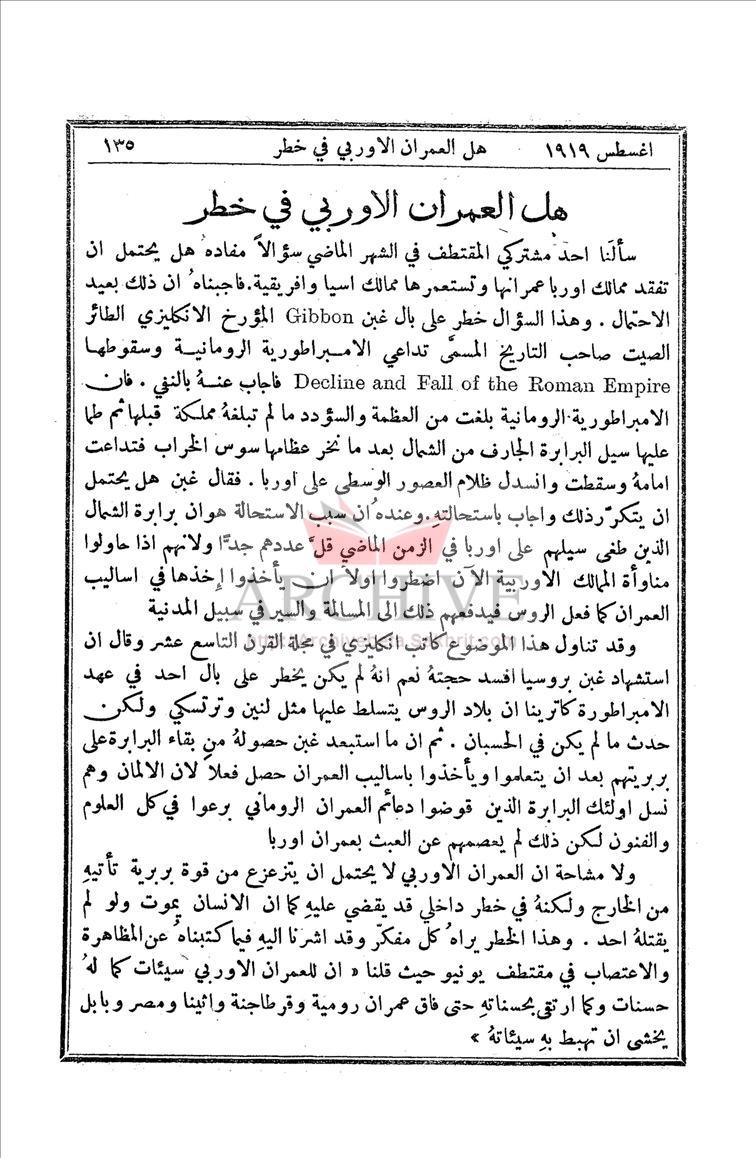 اغسطس ١٩١٩ هل العمران الاوربي في خطر ١٣٥
هل العمران الاوربي في خطر
سألنا احد مشتركي المقتطف في الشهر الماضي سؤالاً مفاده هل يحتمل ان
تفقد ممالك اوربا عمرانها وتستعمرها ممالك اسيا وافريقية. فاجبناهُ ان ذلك بعيد
الاحتمال . وهذا السؤال خطر على بال غبن Gibbon المؤرخ الانكليزي الطائر
الصيت صاحب التاريخ المسمَّى تداعي الامبراطورية الرومانية وسقوطها
Decline and Fall of the Roman Empire فاجاب عنهُ بالنفي . فان
الامبراطورية الرومانية بلغت من العظمة والسؤدد ما لم تبلغهُ مملكة قبلها ثم طما
عليها سيل البرابرة الجارف من الشمال بعد ما نخر عظامها سوس الخراب فتداعت
امامهُ وسقطت وانسدل ظلام العصور الوسطى على اوربا . فقال غبن هل يحتمل
ان يتكرّر ذلك واجاب باستحالتهِ. وعندهُ ان سبب الاستحالة هو ان برابرة الشمال
الذين طغى سيلهم على اوربا في الزمن الماضي قلَّ عددهم جدًّا ولانهم اذا حاولوا
مناوأة الممالك الاوربية الآن اضطروا اولاً ان يأخذوا إخذها في اساليب
العمران كما فعل الروس فيدفعهم ذلك الى المسالمة والسير في سبيل المدنية
وقد تناول هذا الموضوع كاتب انكليزي في مجلة القرن التاسع عشر وقال ان
استشهاد غبن بروسيا افسد حجتهُ نعم انهُ لم يكن يخطر على بال احد في عهد
الامبراطورة كاترينا ان بلاد الروس يتسلط عليها مثل لنين وترتسكي ولكن
حدث ما لم يكن في الحسبان . ثم ان ما استبعد غبن حصولهُ من بقاء البرابرة على
بربريتهم بعد ان يتعلموا ويأخذوا باساليب العمران حصل فعلاً لان الالمان وهم
نسل اولئك البرابرة الذين قوضوا دعائم العمران الروماني برعوا في كل العلوم
والفنون لكن ذلك لم يعصمهم عن العبث بعمران اوربا
ولا مشاحة ان العمران الاوربي لا يحتمل ان يتزعزع من قوة بربرية تأتيهِ
من الخارج ولكنهُ في خطر داخلي قد يقضي عليهِ كما ان الانسان يموت ولو لم
يقتلهُ احد . وهذا الخطر يراهُ كل مفكّر وقد اشرنا اليهِ فيما كتبناهُ عن المظاهرة
والاعتصاب في مقتطف يونيو حيث قلنا « ان للعمران الاوربي سيئات كما لهُ
حسنات وكما ارتقى بحسناتهِ حتى فاق عمران رومية وقرطاجنة واثينا ومصر وبابل
يخشى ان تهبط بهِ سيئاتهُ »
ARCHIVE
http://Archivebeta.Sakhrit.com